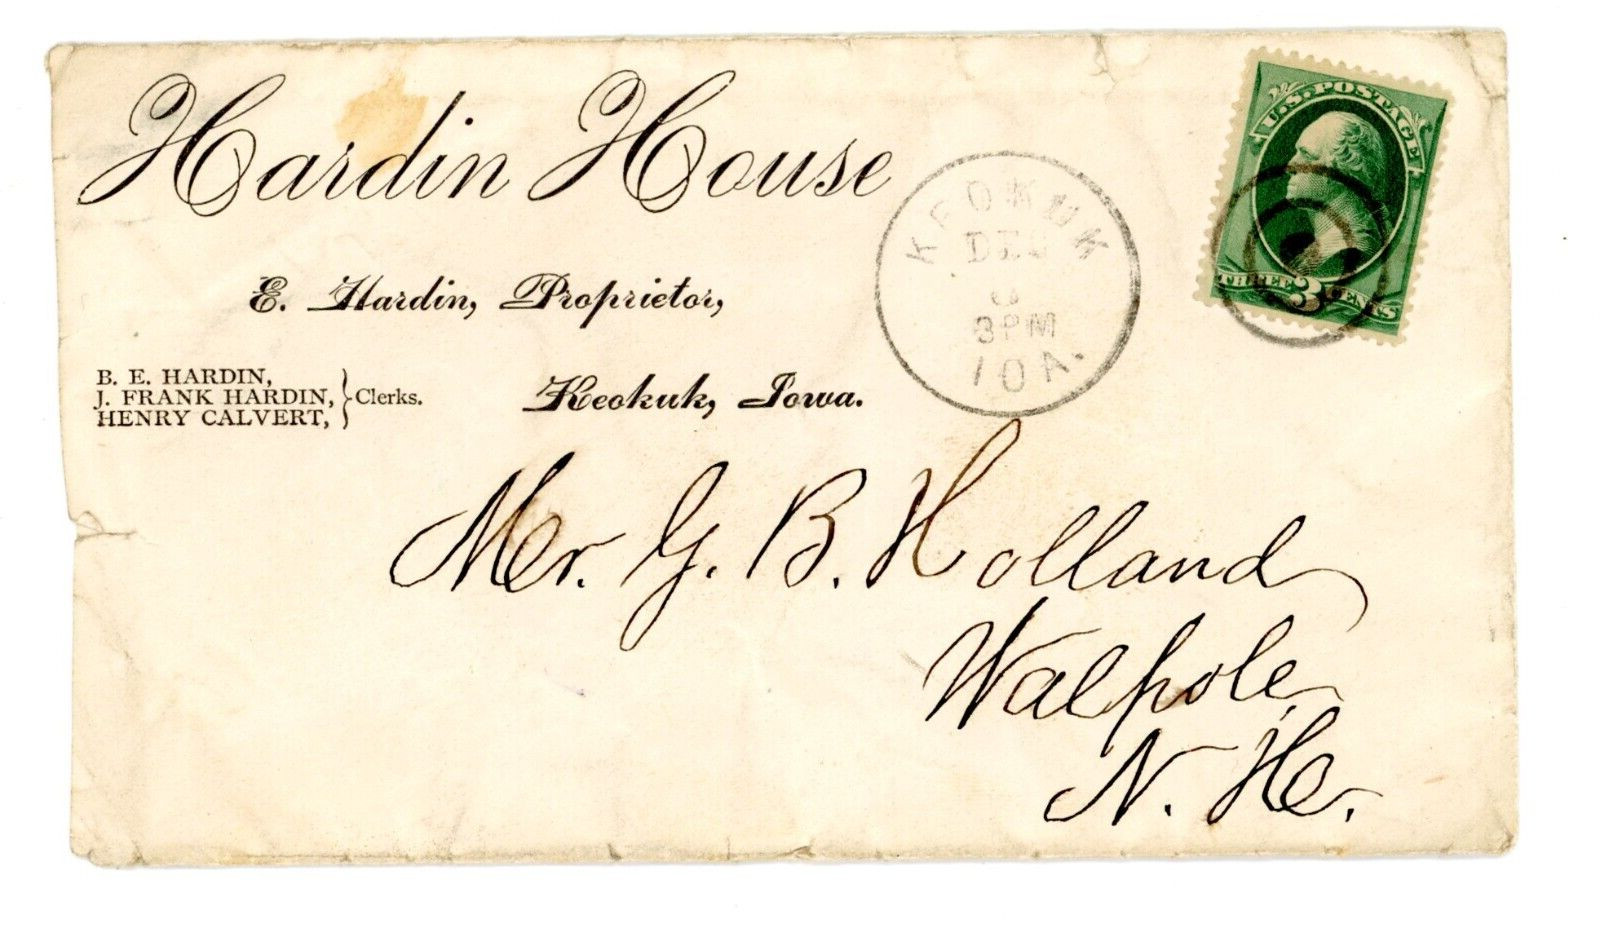 Hardin House
E. Hardin, Proprietor,
B. E. HARDIN,
J. FRANK HARDIN,
HENRY CALVERT,
} Clerks.
Keokuk, Iowa.
KEOKUK
DEC
3PM
IOA.
U.S. POSTAGE
THREE 3 CENTS
Mr. G. B. Holland
Walpole,
N. H.